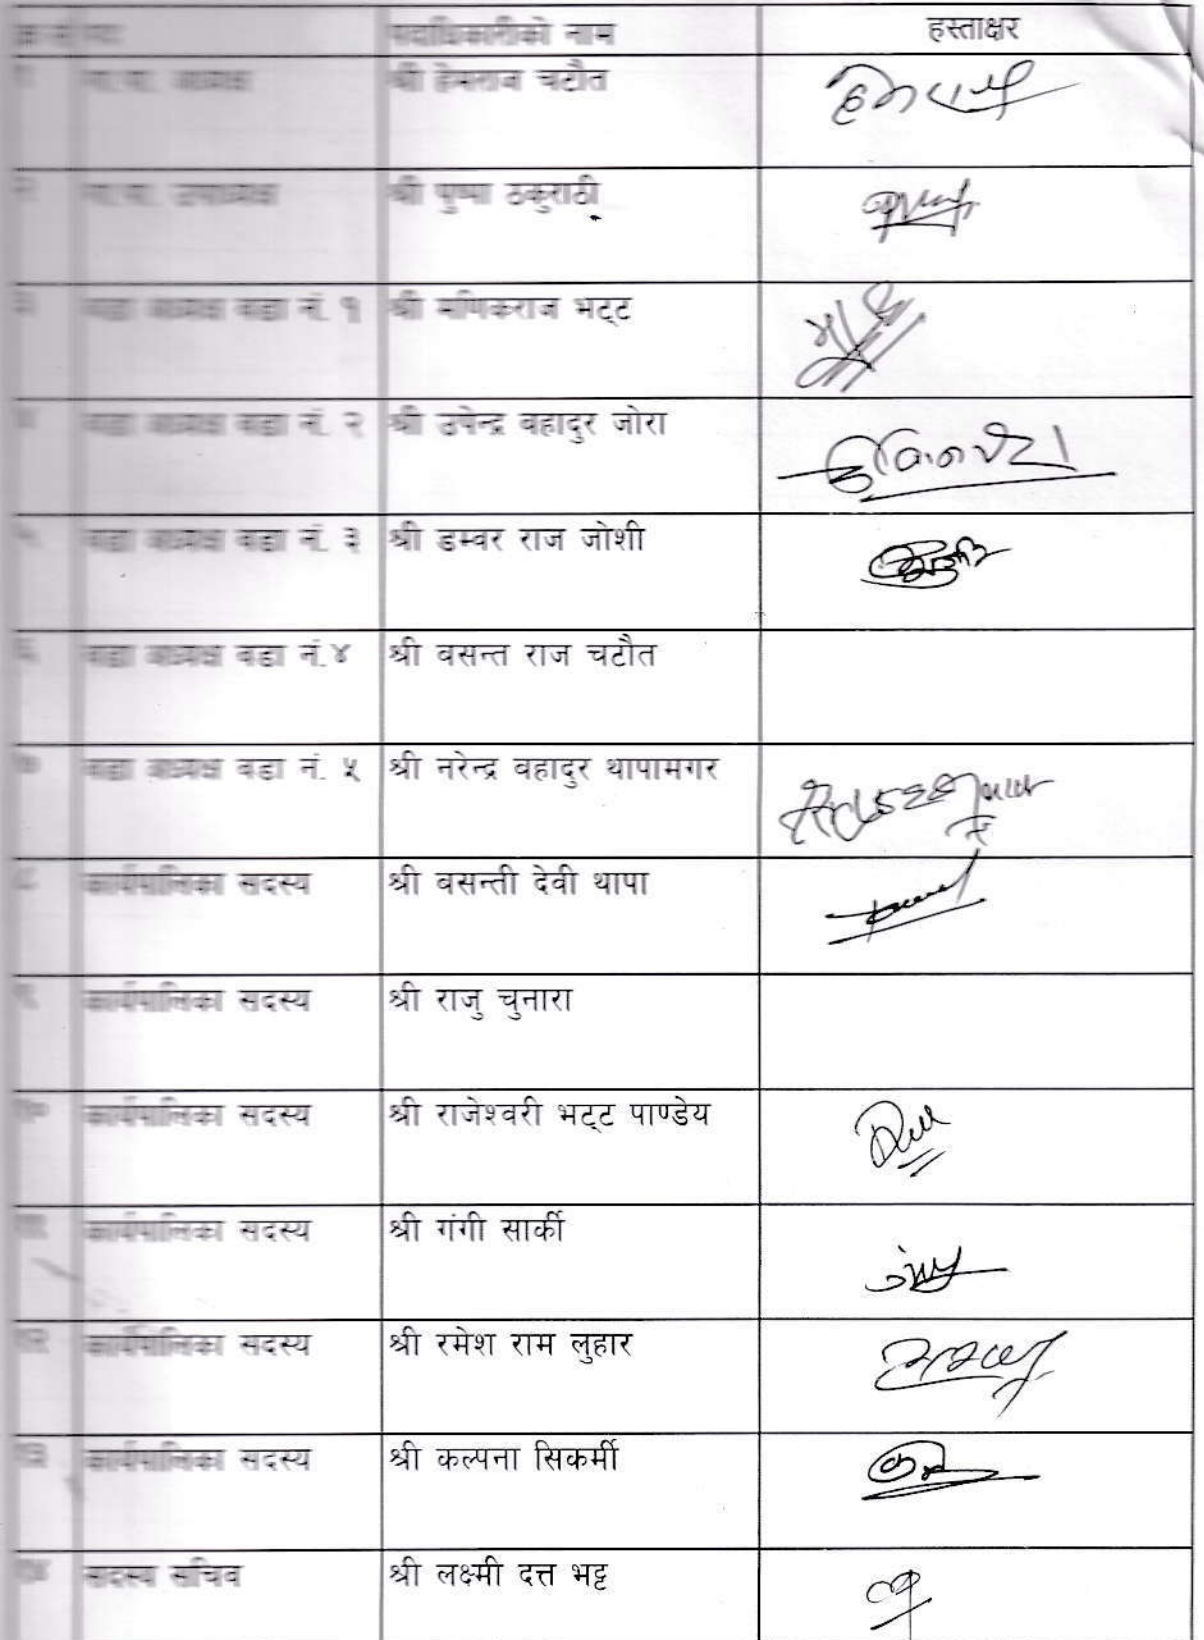 क्र.सं. पद पदाधिकारीको नाम हस्ताक्षर
गा.पा. अध्यक्ष श्री हेमराज चटौत
२ गा.पा. उपाध्यक्ष श्री पुष्पा ठकुराठी
३ वडा अध्यक्ष वडा नं. १ श्री मणिकराज भट्ट
४ वडा अध्यक्ष वडा नं. २ श्री उपेन्द्र वहादुर जोरा
५ वडा अध्यक्ष वडा नं. ३ श्री डम्वर राज जोशी
६ वडा अध्यक्ष वडा नं.४ श्री वसन्त राज चटौत
७ वडा अध्यक्ष वडा नं. ५ श्री नरेन्द्र वहादुर थापामगर
८ कार्यपालिका सदस्य श्री वसन्ती देवी थापा
९ कार्यपालिका सदस्य श्री राजु चुनारा
१० कार्यपालिका सदस्य श्री राजेश्वरी भट्ट पाण्डेय
११ कार्यपालिका सदस्य श्री गंगी सार्की
१२ कार्यपालिका सदस्य श्री रमेश राम लुहार
१३ कार्यपालिका सदस्य श्री कल्पना सिकर्मी
१४ सदस्य सचिव श्री लक्ष्मी दत्त भट्ट